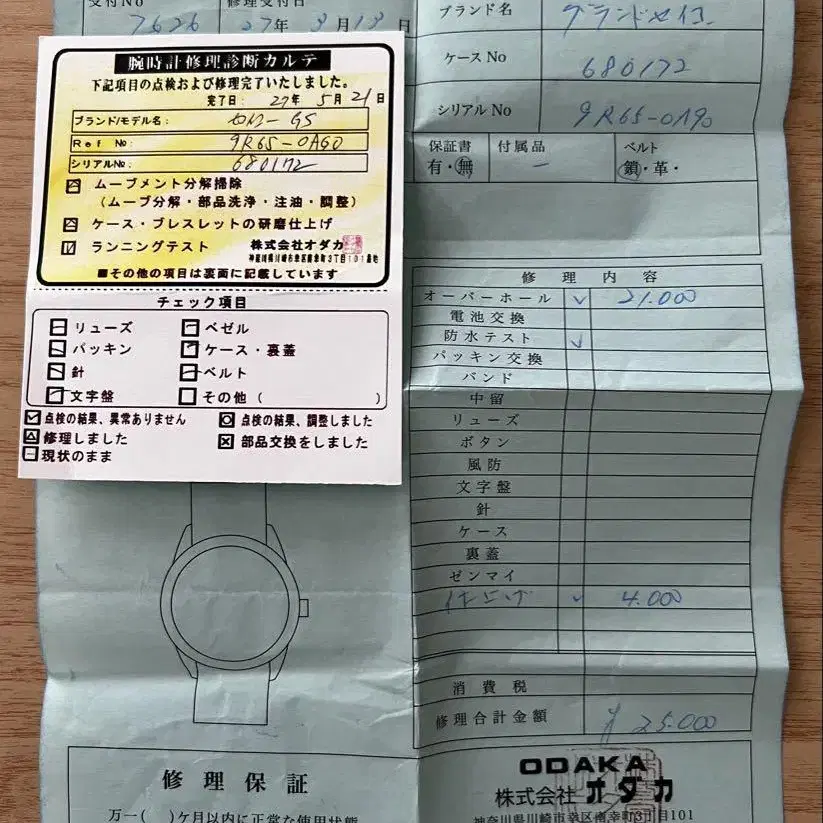 受付No 7626 修理受付日 27年 3月13日
ブランド名 グランドセイコー
ケースNo 680172
シリアルNo 9R65-0A90
保証書 有・無
付属品 ー
ベルト 鎖・革・
腕時計修理診断カルテ
下記項目の点検および修理完了いたしました。
完了日: 27年 5月21日
ブランド/モデル名: セイコー GS
Ref No: 9R65-0AG0
シリアルNo: 680172
ムーブメント分解掃除
(ムーブ分解・部品洗浄・注油・調整)
ケース・ブレスレットの研磨仕上げ
ランニングテスト 株式会社オダカ
神奈川県川崎市幸区南幸町3丁目101番地
■その他の項目は裏面に記載しています
チェック項目
リューズ ベゼル
パッキン ケース・裏蓋
針 ベルト
文字盤 その他( )
点検の結果、異常ありません 点検の結果、調整しました
修理しました 部品交換をしました
現状のまま
修理内容
オーバーホール ✓ 21.000
電池交換
防水テスト ✓
パッキン交換
バンド
中留
リューズ
ボタン
風防
文字盤
針
ケース
裏蓋
ゼンマイ
✓ 4.000
消費税
修理合計金額 ¥25.000
修理保証
万一( )ケ月以内に正常な使用状態
ODAKA
株式会社オダカ
神奈川県川崎市幸区南幸町3丁目101